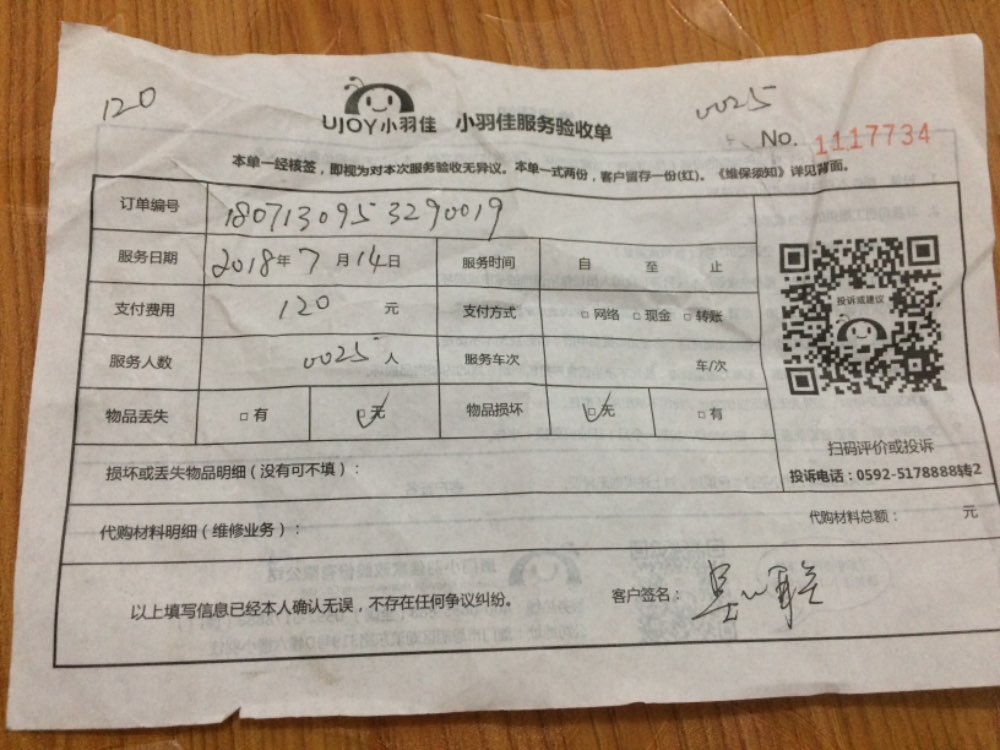 120
0025
UJOY小羽佳 小羽佳服务验收单
No. 1117734
本单一经核签，即视为对本次服务验收无异议。本单一式两份，客户留存一份(红)。《维保须知》详见背面。
订单编号 1807130953290019
服务日期 2018年7月14日 服务时间 自 至 止
支付费用 120 元 支付方式 □网络 □现金 □转账
服务人数 0025人 服务车次 车/次
物品丢失 □有 □无 物品损坏 □无 □有
投诉或建议
扫码评价或投诉
投诉电话：0592-5178888转2
损坏或丢失物品明细（没有可不填）：
代购材料明细（维修业务）： 代购材料总额： 元
以上填写信息已经本人确认无误，不存在任何争议纠纷。 客户签名：